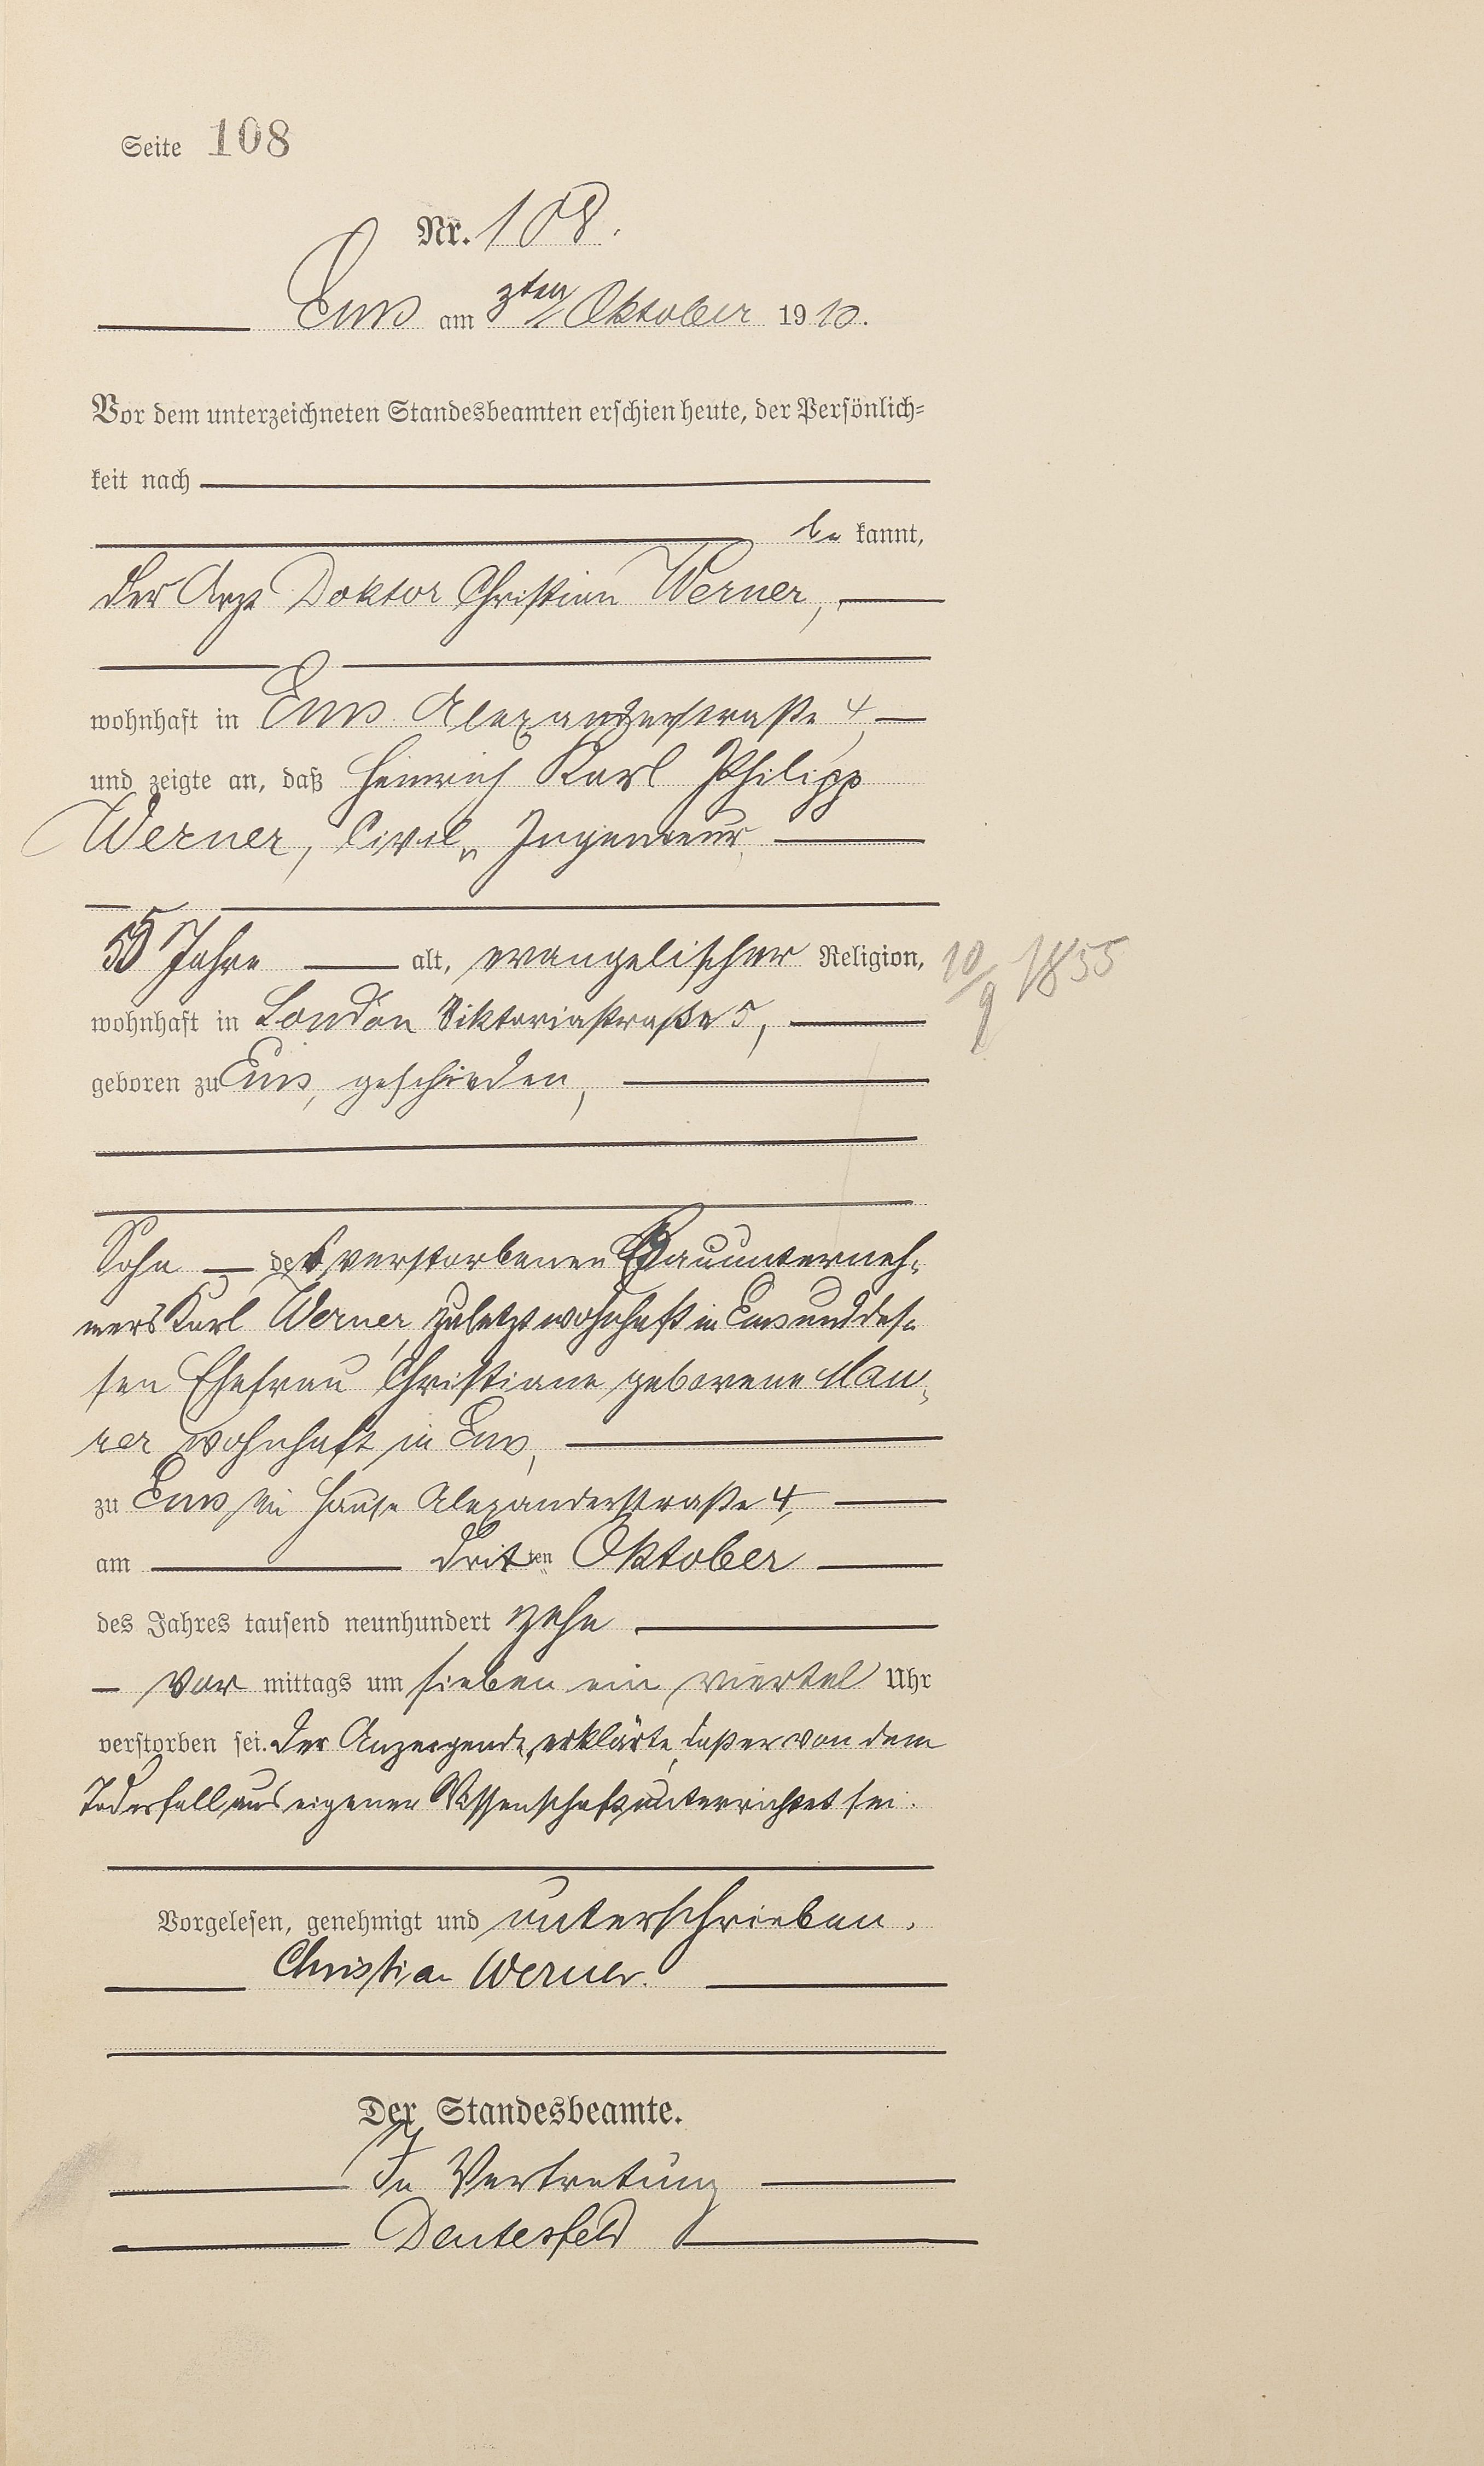 Seite 108
Nr. 108.
Ems am 3ten Oktober 1910.
Vor dem unterzeichneten Standesbeamten erschien heute, der Persönlich-
keit nach
be kannt,
der Arzt Doktor Christian Werner,
wohnhaft in Ems Alexanderstraße 4,
und zeigte an, daß Heinrich Karl Philipp
Werner, Civil-Ingenieur
55 Jahre alt, evangelischer Religion,
10/9 1855
wohnhaft in London Viktoriastraße 5,
geboren zu Ems, geschieden,
Sohn des verstorbenen Bauunterneh-
mers Karl Werner, zuletzt wohnhaft in Ems und des-
sen Ehefrau Christiane geborene Mau-
rer wohnhaft in Ems,
zu Ems im Hause Alexanderstraße 4,
am dritten Oktober
des Jahres tausend neunhundert zehn
Vor mittags um sieben ein viertel Uhr
verstorben sei. Der Anzeigende erklärte, daß er von dem
Todesfall aus eigener Wissenschaft unterrichtet sei.
Vorgelesen, genehmigt und unterschrieben.
Christian Werner.
Der Standesbeamte.
In Vertretung